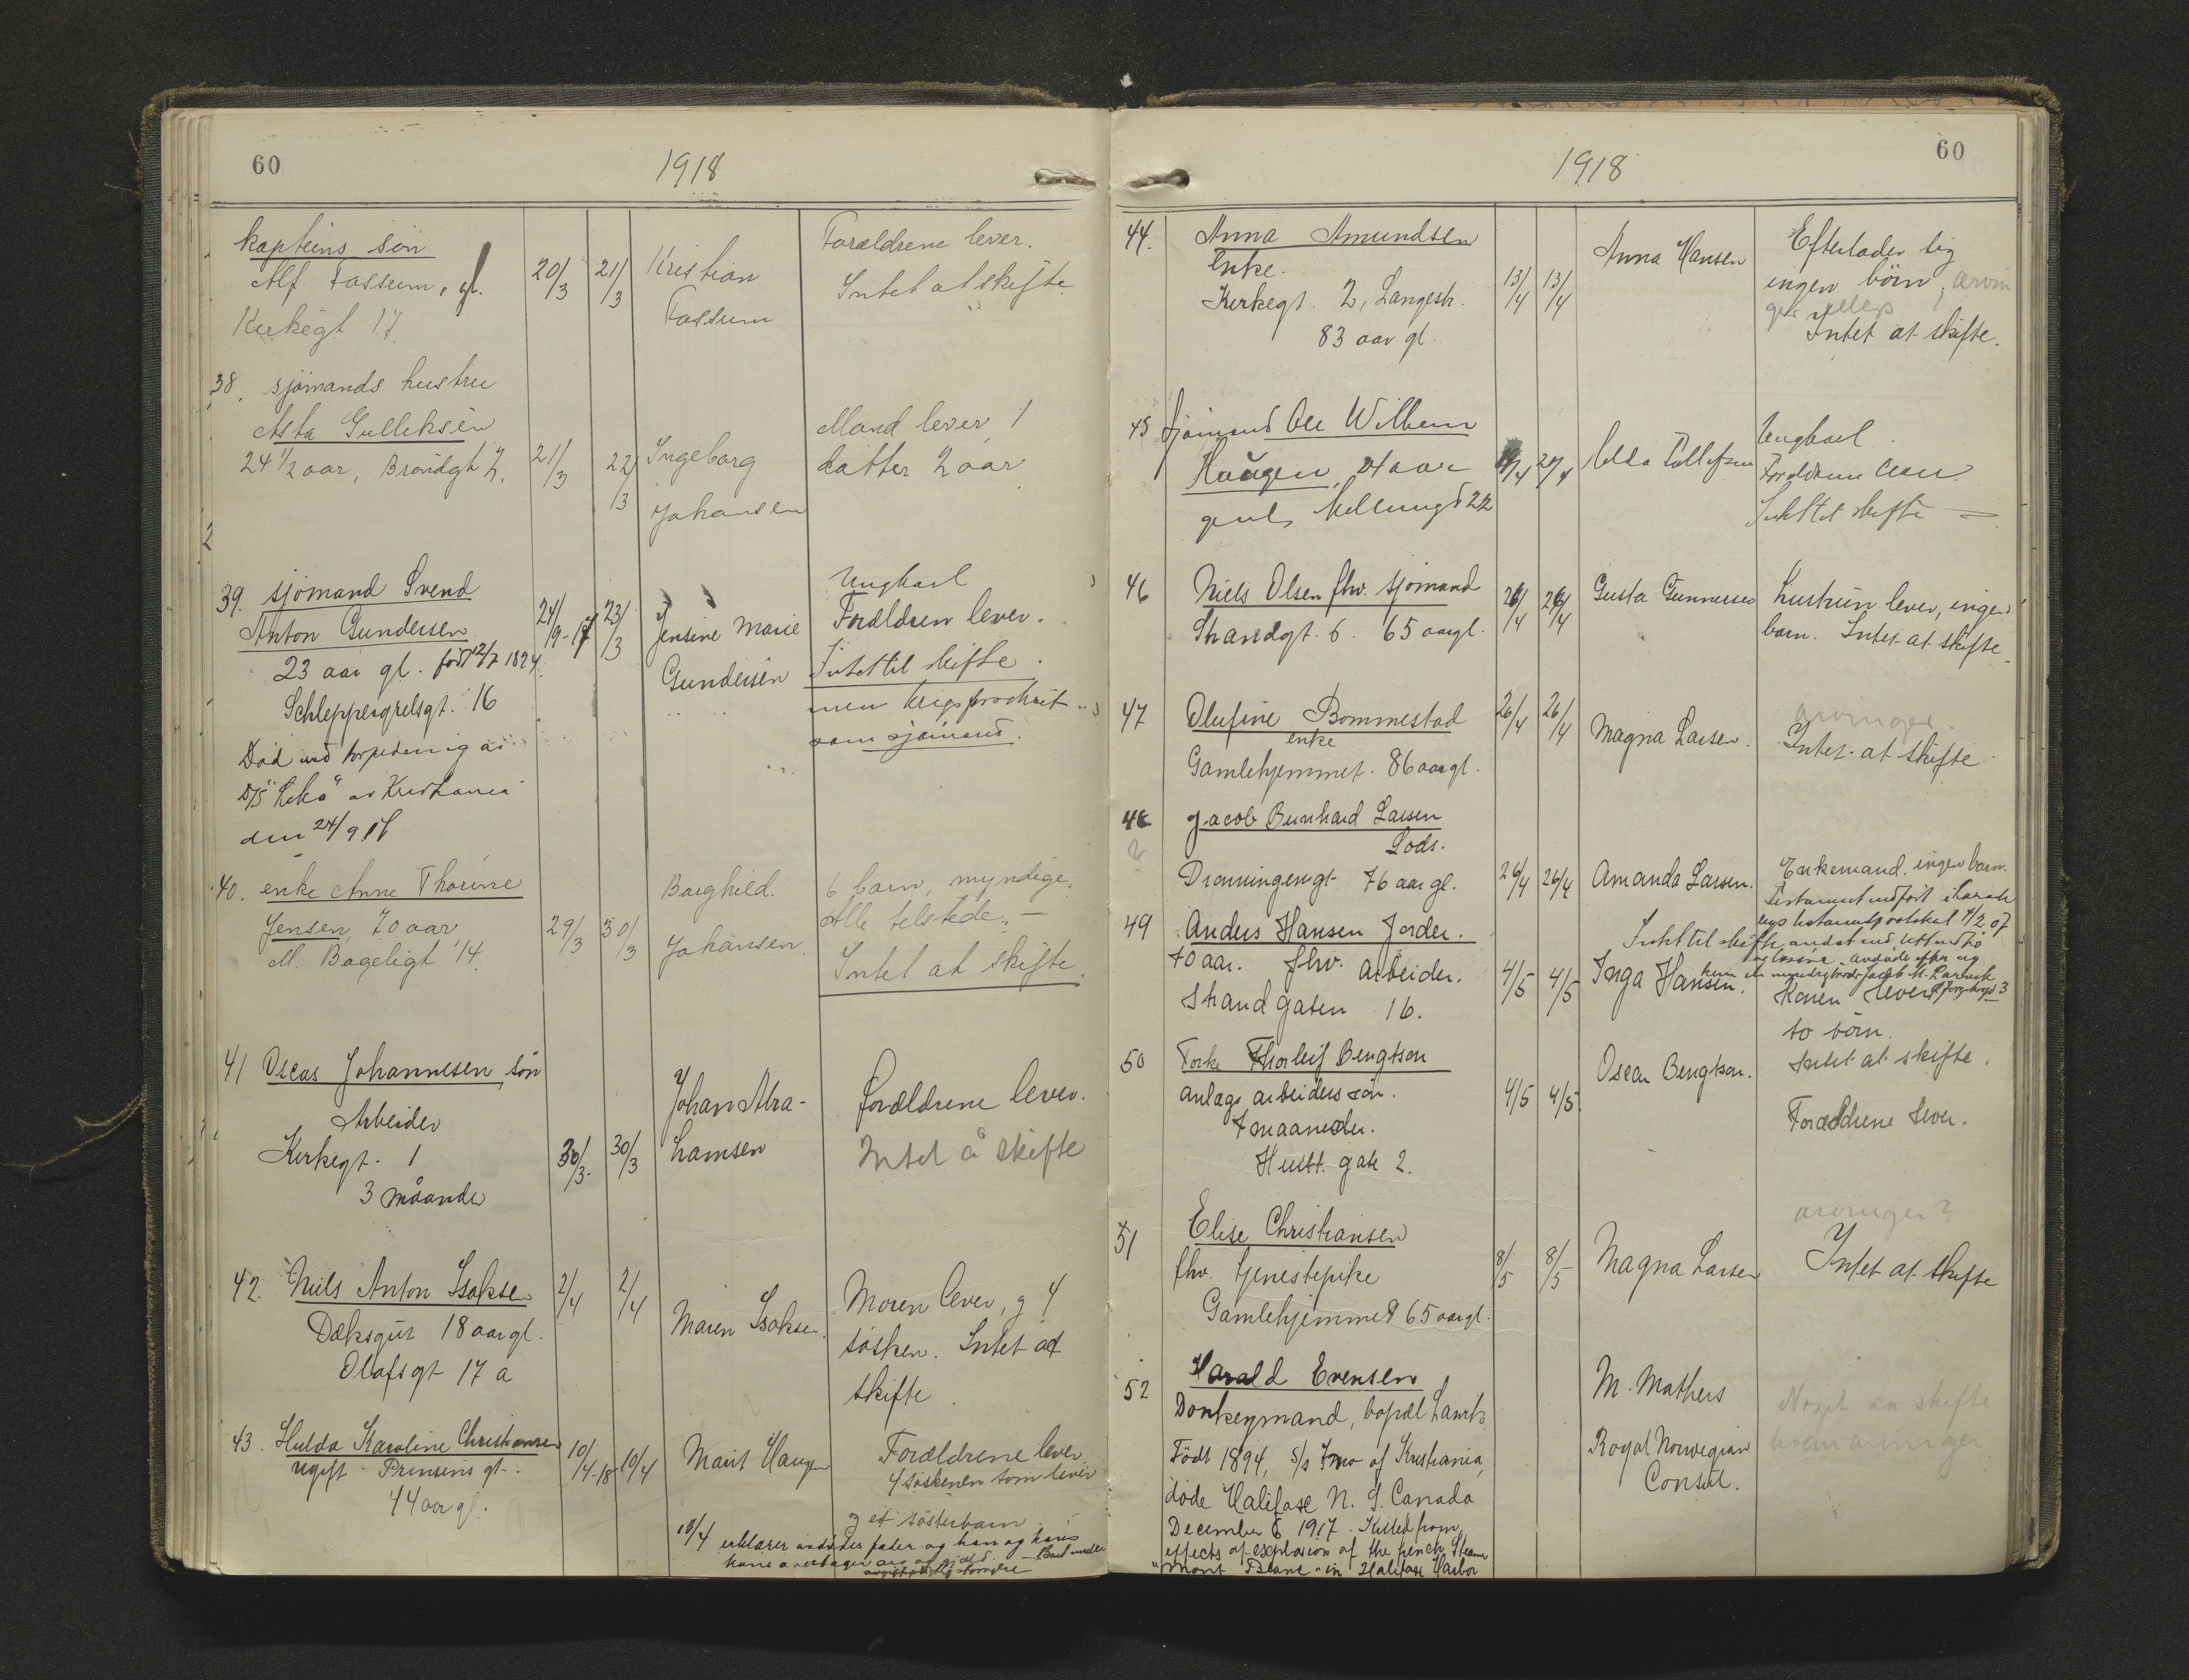 60
1918
kapteins sön
Alf Fossum, gl.
Kirkegt 17.
20/3
21/3
Kristian
Fossum
Forældrene lever.
Intet at skifte
38. sjömands hustru
Asta Gulliksen
24 1/2 aar, Brøndgt 2.
21/3
22/3
Ingeborg
Johansen
Mand lever, 1
datter 2 aar
39. sjömand Svend
Anton Gundersen
23 aar gl. född 12/7 1894.
Schleppegrelsgt. 16
Död ved torpedering av
D/S "Leka" av Kristiania
den 24/9 17
24/9-17
23/3
Jensine Marie
Gundersen
Ungkarl
Forældren lever.
Intet til skifte.
men krigsforsikret
som sjömand.
40. enke Anne Thorine
Jensen, 70 aar
M. Bageligt 14.
29/3
30/3
Borghild.
Johansen
6 barn, myndige.
Alle tilstede. —
Intet at skifte.
41 Oscar Johannesen, sön
Arbeider
Kirkegt. 1
3 måander
30/3.
30/3
Johan Abra-
hamsen
forældrene lever.
Intet å skifte
42. Niels Anton Isaksen
Dæksgut 18 aar gl.
Olafsgt 17 a
2/4
2/4
Maren Isaksen.
Moren lever, g 4
søsken. Intet at
skifte.
43. Hulda Karoline Christiansen
ugift. Prinsens gt.
44 aar gl.
10/4-18
10/4
Marit Haugen
Forældrene lever
4 søskenen som lever
og et søsterbarn.
10/4 erklærer avdødes fader og han og hans
kone overtager arv og gjæld.
60
1918
44. Anna Amundsen
Enke.
Kirkegt. 2, Langestr.
83 aar gl.
13/4
13/4
Anna Hansen
Efterlader sig
ingen börn,
Intet at skifte.
45 Sjömand Ole Wilhem
Haugen, 21 aar
20/4
Ungkarl.
Intet til skifte —
46 Niels Olsen fhv. sjømand
Strandgt. 6. 65 aar gl.
26/4
26/4
Gusta Gunnersen
hustruen lever, ingen
barn. Intet at skifte.
47 Olufine Bommestad
enke
Gamlehjemmet. 86 aar gl.
26/4
26/4
Magna Larsen.
arvinger.
Intet at skifte
48 Jacob Bernhard Larsen
Lods.
Dronningengt 76 aar gl.
26/4
26/4
Amanda Larsen.
Enkemand, ingen barn.
49 Anders Hansen Jorder.
70 aar. fhv. Arbeider.
Strandgaten 16.
4/5
4/5
Inga Hansen.
Konen lever
to börn.
Intet at skifte.
50 Thorleif Bengtson
anlægs arbeiders sön.
7 maaneder.
Huitt. gate 2.
4/5
4/5.
Oscar Bengtson.
Forældrene lever.
51 Elise Christiansen
fhv. tjenestepike
Gamlehjemmet 65 aar gl.
8/5
8/5
Magna Larsen
arvinger?
Intet at skifte
52 Harald Evensen
Donkeymand,
Född 1894, S/S Imo of Kristiania,
døde Halifax N. S. Canada
December 6 1917. Killed from
effects of explosion of the french Steamer
"Mont Blanc" in Halifax Harbor
M. Mathers
Royal Norwegian
Consul.